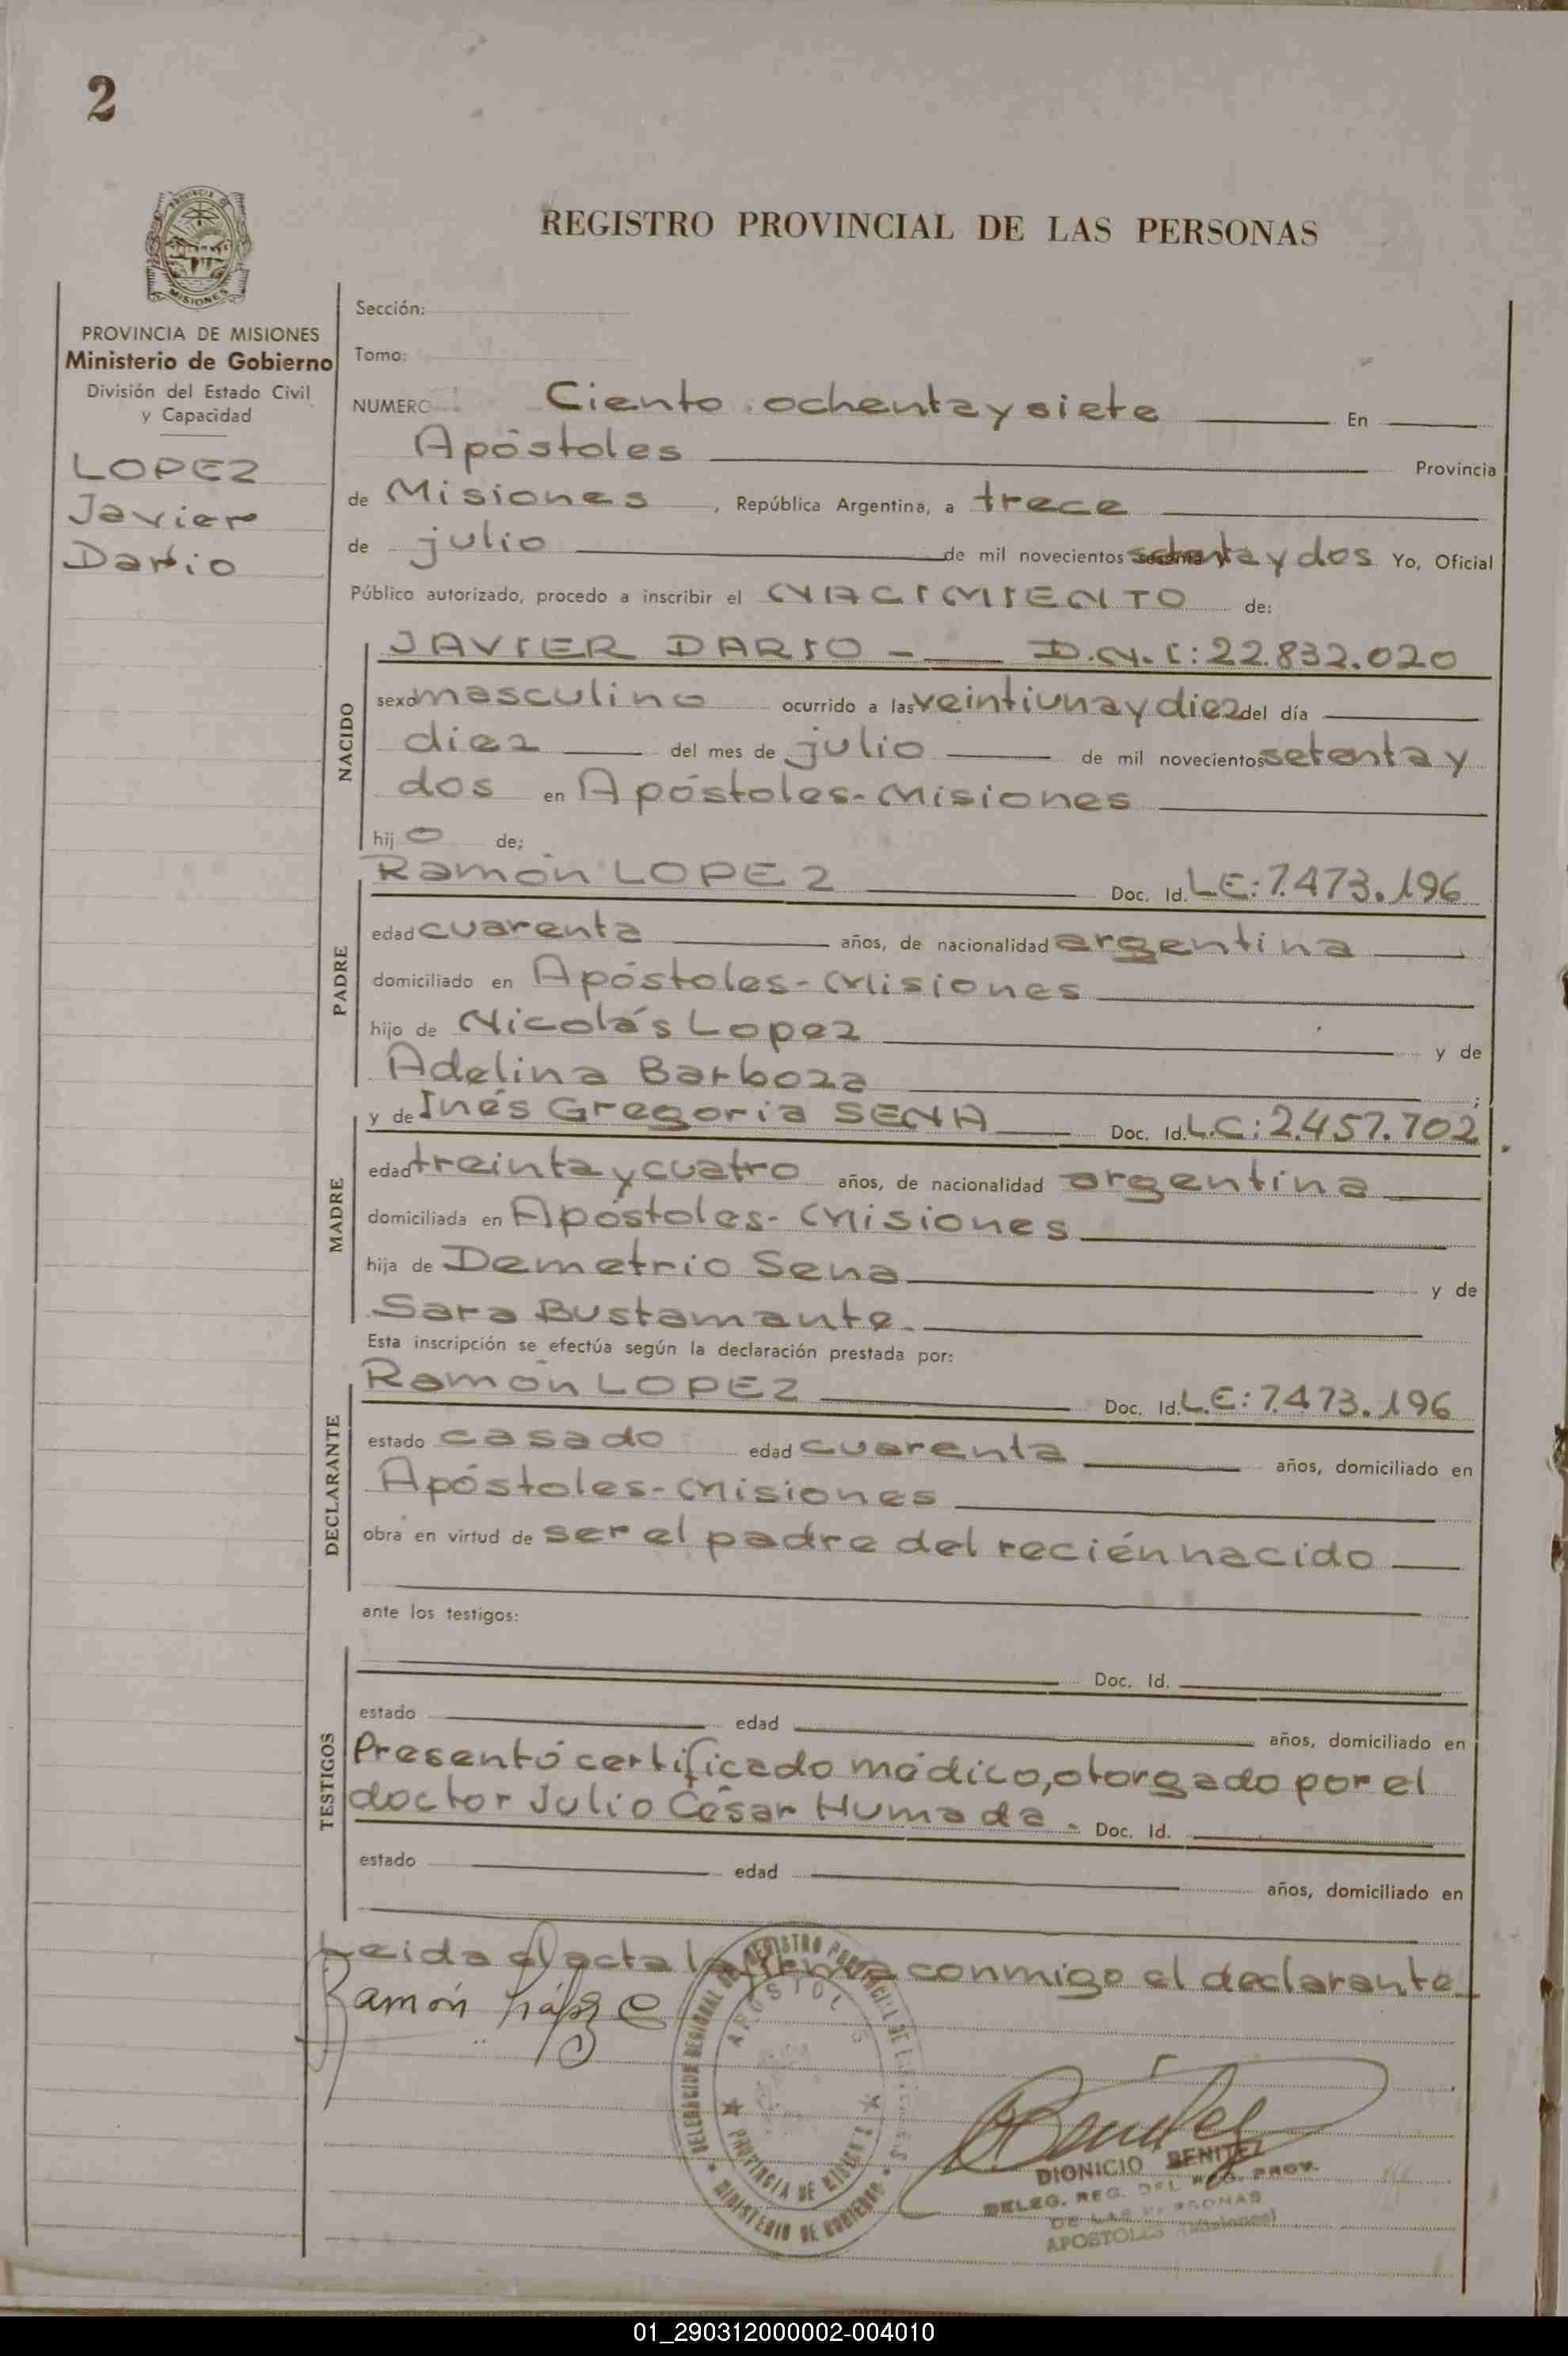 2
REGISTRO PROVINCIAL DE LAS PERSONAS
PROVINCIA DE MISIONES
Ministerio de Gobierno
División del Estado Civil
y Capacidad
LOPEZ
Javier
Darío
Sección:
Tomo:
NUMERO Ciento ochenta y siete En
Apóstoles Provincia
de Misiones, República Argentina, a trece
de julio de mil novecientos setenta y dos Yo, Oficial
Público autorizado, procedo a inscribir el NACIMIENTO de:
NACIDO
JAVIER DARIO - D.N.I: 22.832.020
sexo masculino ocurrido a las veintiuna y diez del día
diez del mes de julio de mil novecientos setenta y
dos en Apóstoles-Misiones
hijo de;
PADRE
Ramón LOPEZ Doc. Id. L.E: 7.473.196
edad cuarenta años, de nacionalidad argentina
domiciliado en Apóstoles-Misiones
hijo de Nicolás Lopez y de
Adelina Barboza ;
MADRE
y de Inés Gregoria SENA Doc. Id. L.C: 2.457.702
edad treinta y cuatro años, de nacionalidad argentina
domiciliada en Apóstoles-Misiones
hija de Demetrio Sena y de
Sara Bustamante.
Esta inscripción se efectúa según la declaración prestada por:
DECLARANTE
Ramón LOPEZ Doc. Id. L.E: 7.473.196
estado casado edad cuarenta años, domiciliado en
Apóstoles-Misiones
obra en virtud de ser el padre del recién nacido
ante los testigos:
TESTIGOS
Doc. Id.
estado edad años, domiciliado en
Presentó certificado médico, otorgado por el
doctor Julio César Humada. Doc. Id.
estado edad años, domiciliado en
Leida el acta la firma conmigo el declarante
Ramón López
DELEGACION REGIONAL DEL REGISTRO PROVINCIAL DE LAS PERSONAS
APOSTOLES
PROVINCIA DE MISIONES
MINISTERIO DE GOBIERNO
Benitez
DIONICIO BENITEZ
DELEG. REG. DEL REG. PROV.
DE LAS PERSONAS
APOSTOLES (Misiones)
01_290312000002-004010